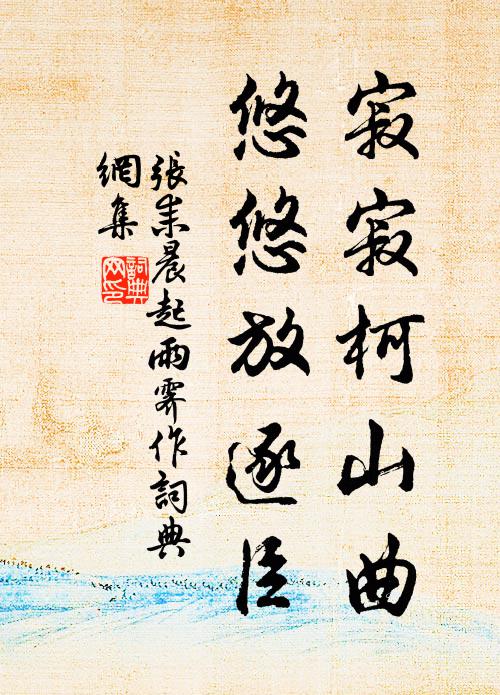 寂寂柯山曲
悠悠放逐臣
張耒晨起雨霽作詞典
網集
詞典
网印